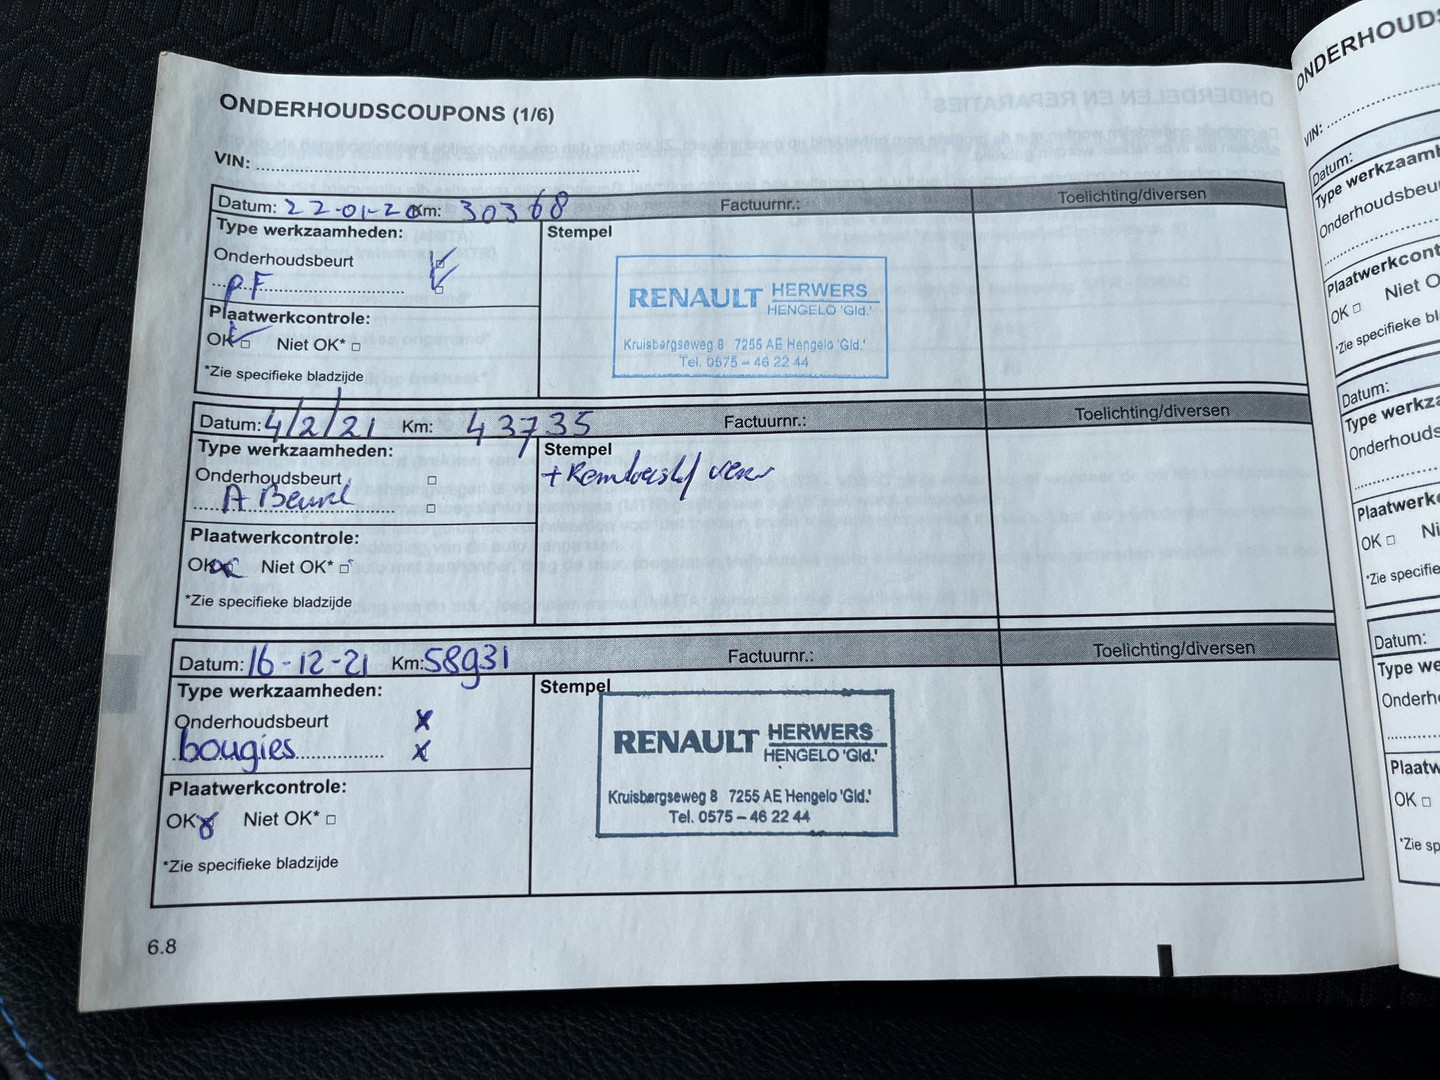 ONDERHOUDSCOUPONS (1/6)
VIN:
Datum: 22-01-20 Km: 30368 Factuurnr.: Toelichting/diversen
Type werkzaamheden: Stempel
Onderhoudsbeurt
PF
Plaatwerkcontrole:
OK □ Niet OK* □
*Zie specifieke bladzijde
RENAULT HERWERS
HENGELO 'Gld.'
Kruisbergseweg 8 7255 AE Hengelo 'Gld.'
Tel. 0575 – 46 22 44
Datum: 4/2/21 Km: 43735 Factuurnr.: Toelichting/diversen
Type werkzaamheden: Stempel
Onderhoudsbeurt □
A Beurt □
Plaatwerkcontrole:
OK Niet OK* □
*Zie specifieke bladzijde
Datum: 16-12-21 Km: 58931 Factuurnr.: Toelichting/diversen
Type werkzaamheden: Stempel
Onderhoudsbeurt x
bougies x
Plaatwerkcontrole:
OK Niet OK* □
*Zie specifieke bladzijde
RENAULT HERWERS
HENGELO 'Gld.'
Kruisbergseweg 8 7255 AE Hengelo 'Gld.'
Tel. 0575 – 46 22 44
6.8
VIN:
Datum:
Type werkzaamh
Onderhoudsbeur
Plaatwerkcont
OK □ Niet O
*Zie specifieke bl
Datum:
Type werkza
Onderhouds
Plaatwerk
OK □ Ni
*Zie specifie
Datum:
Type we
Onderh
Plaatw
OK □
*Zie sp